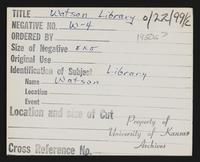 TITLE Watson Library 0/22/99/c
NEGATIVE NO. W-4
ORDERED BY 1950s?
Size of Negative 8x5
Original Use
Identification of Subject Library
Name Watson
Location
Event
Location and size of Cut
Property of
University of Kansas
Archives
Cross Reference No.